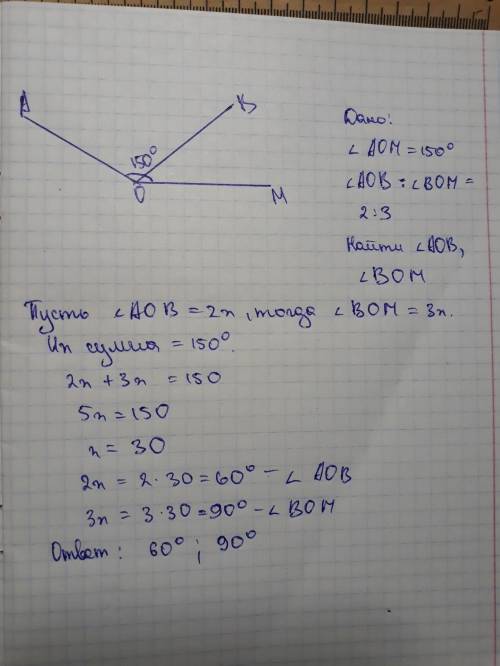 A
B
150°
O
M
Дано:
∠AOM = 150°
∠AOB : ∠BOM =
2:3
Найти ∠AOB,
∠BOM
Пусть ∠AOB = 2x, тогда ∠BOM = 3x.
Их сумма = 150°.
2x + 3x = 150
5x = 150
x = 30
2x = 2·30 = 60° – ∠AOB
3x = 3·30 = 90° – ∠BOM
Ответ: 60°; 90°